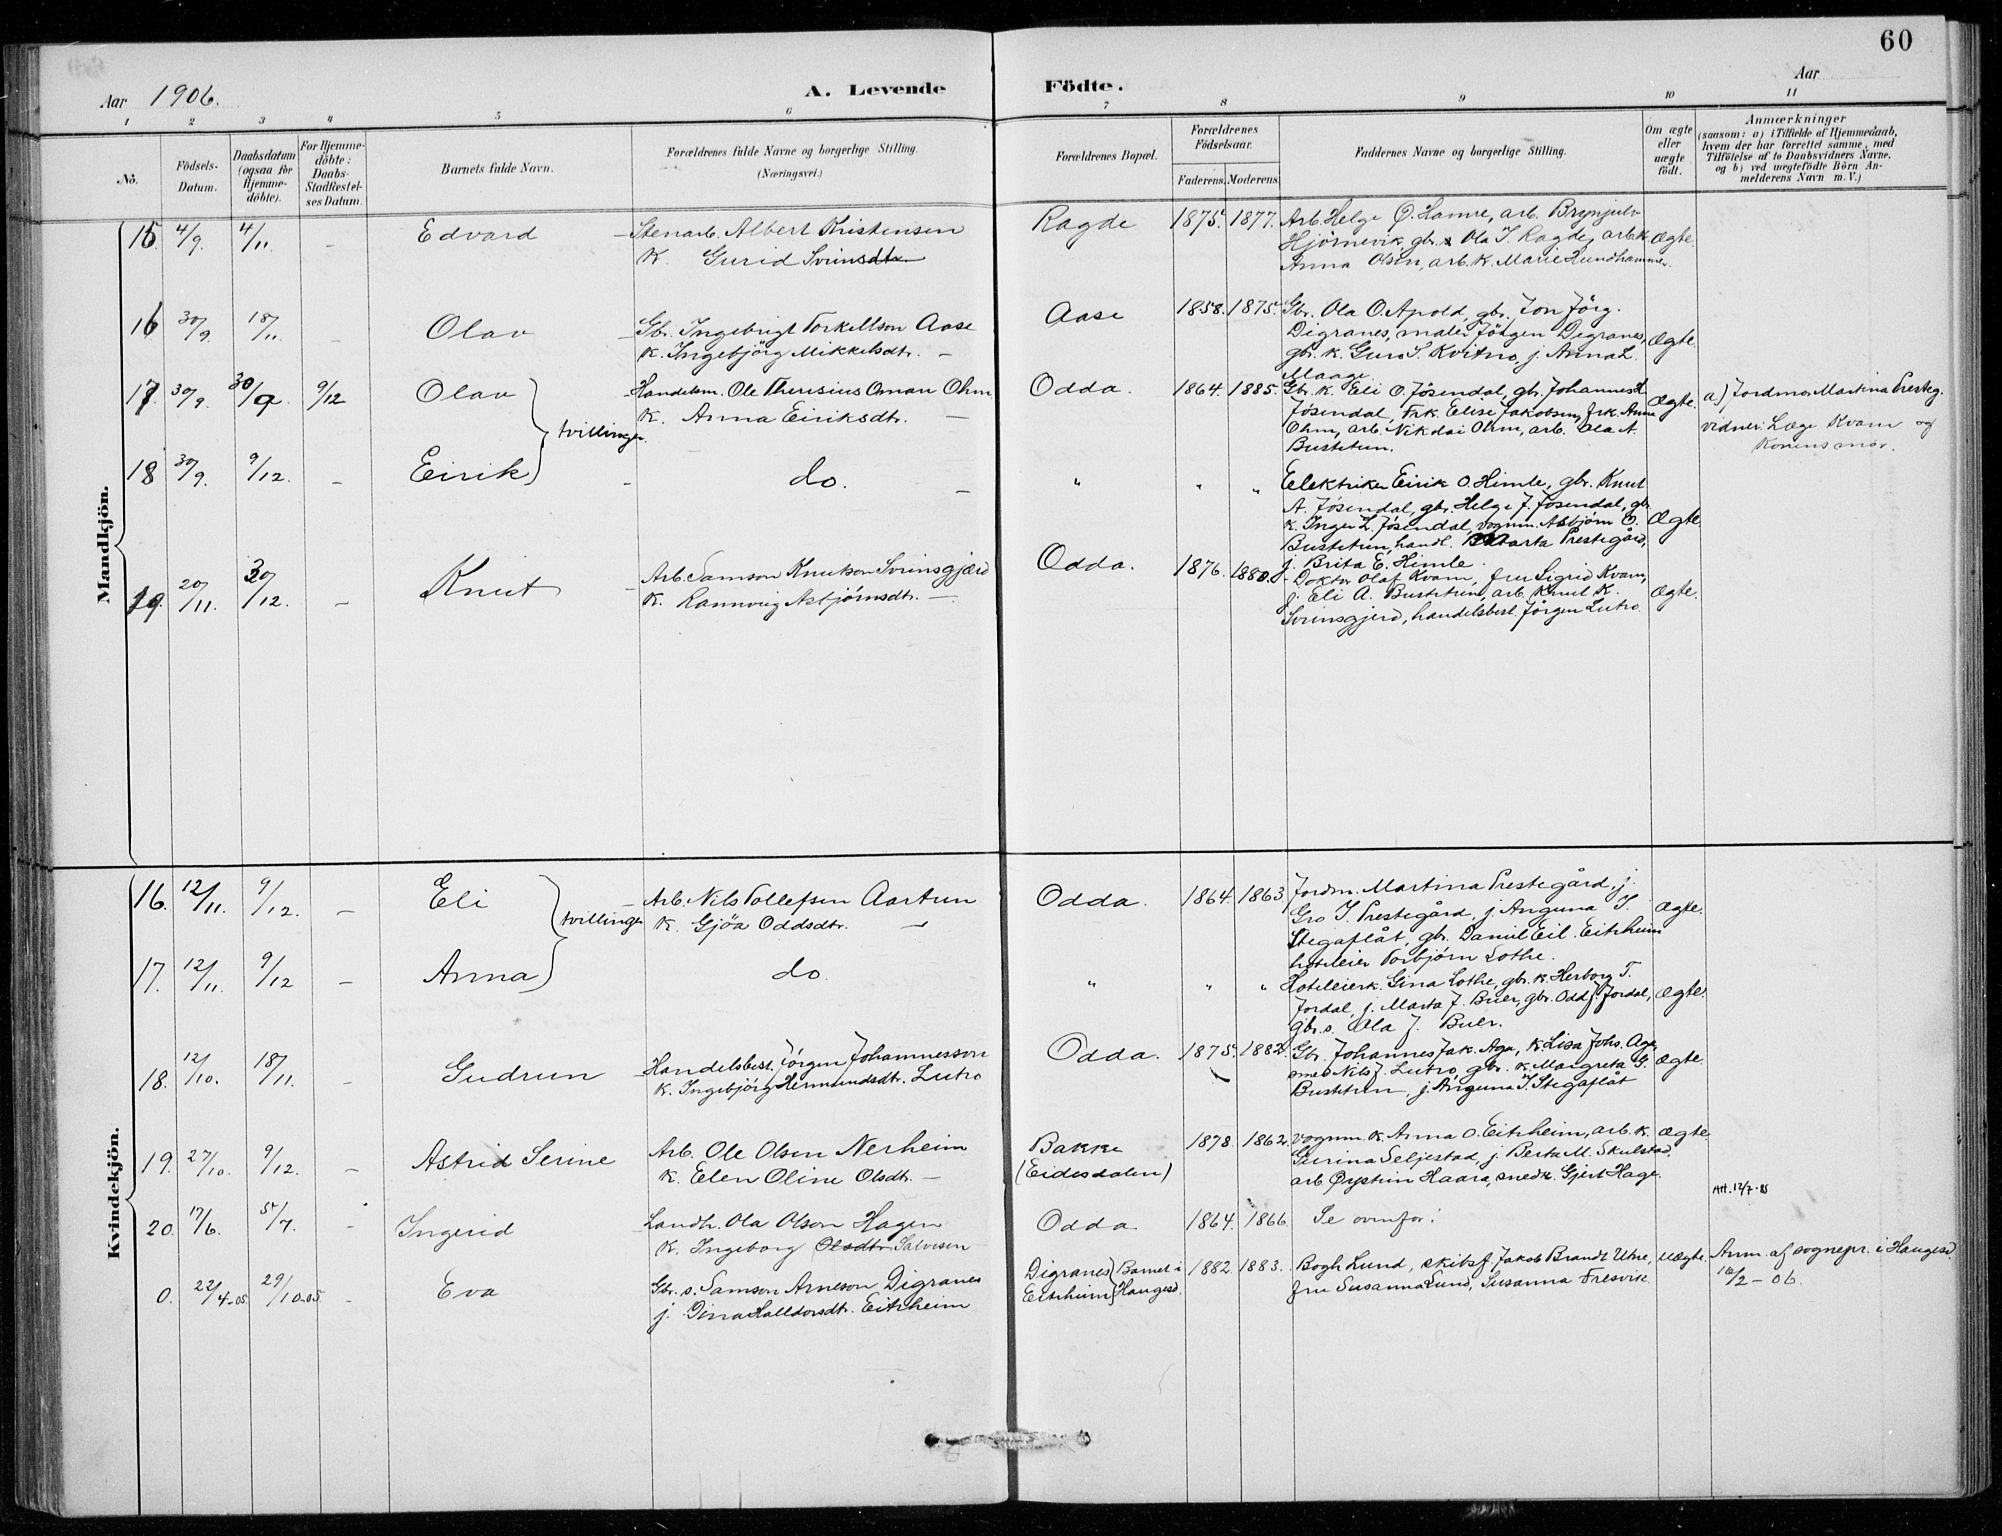 60
Aar 1906.
A. Levende Födte.
Aar
1 2 3 4 5 6 7 8 9 10 11
No.
Födsels-Datum.
Daabsdatum (ogsaa for Hjemme-döbte).
For Hjemme-döbte: Daabs-Stadfæstel-ses Datum.
Barnets fulde Navn.
Forældrenes fulde Navne og borgerlige Stilling. (Næringsvei.)
Forældrenes Bopæl.
Forældrenes Födselsaar.
Faderens. Moderens.
Faddernes Navne og borgerlige Stilling.
Om ægte eller uægte födt.
Anmærkninger (saasom: a) i Tilfælde af Hjemmedaab, hvem der har forrettet samme, med Tilföielse af to Daabsvidners Navne, og b) ved uægtefödte Börn An-melderens Navn m. V.)
Mandkjön.
15. 4/9. 4/11. - Edvard
Stenarb. Albert Kristensen
K. Gurid Sveinsdtr.
Ragde 1875. 1877.
Arb. Helge O. Hamre, arb. Brynjulv
Hjörnevik, gbr. s. Ola I. Ragde, arb.k. Ægte.
Anna Olsen, arb. k. Marie Lundhammer.
16 30/9. 18/11. - Olav
Gbr. Ingebrigt Torkellson Aase
K. Ingebjörg Mikkelsdtr. -
Aase 1858. 1875.
Gbr. Ola O. Apold, gbr. Jon Jörg.
Digranes, maler Jörgen Digranes, Ægte.
gbr. k. Guro I. Kvitno, j. Anna L.
Maage.
17. 30/9. 30/9. 9/12 Olav
tvillinger
Handelsm. Ole Theresius Oman Ohm
K. Anna Eiriksdtr. -
Odda. 1864. 1885.
Gbr. k. Eli O. Jösendal, gbr. Johannes H.
Jösendal, Frk. Elise Jakobsen, frk. Anna Ægte.
Ohm, arb. Nikolai Ohm, arb. Ola A.
Bustetun.
a) Jordmor Martina Presteg.
vidner: Læge Kvam og
Konens mor.
18 30/9. 9/12. - Eirik
do. -
" " "
Elektriker Eirik O. Himle, gbr. Knut
A. Jösendal, gbr. Helge J. Jösendal, gbr.
k. Inger L. Jösendal, vognm. Asbjörn O. Ægte.
Bustetun, handl. Marta Prestegård,
j. Brita E. Himle.
19. 20/11. 30/12. - Knut
Arb. Samson Knutson Sveinsgjærd
K. Rannveig Asbjörnsdtr. -
Odda. 1876. 1880.
Doktor Olaf Kvam, fru Sigrid Kvam,
j. Eli A. Bustetun, arb. Knut K. Ægte.
Sveinsgjerd, handelsbest. Jörgen Lutro.
Kvindekjön.
16. 12/11. 9/12. - Eli
tvillinger
Arb. Nils Tollefsen Aartun
K. Gjöa Oddsdtr. -
Odda. 1864. 1863.
Jordm. Martina Prestegård, j.
Gro I. Prestegård, j. Anguna I. Ægte.
Stegaflåt, gbr. Daniel Eil. Eitrheim
hoteleier Torbjörn Lothe.
17. 12/11. 9/12 - Anna
do.
" " "
Hoteleierk. Gina Lothe, gbr. k. Herborg T.
Jordal, j. Marta J. Buer, gbr. Odd J. Jordal, Ægte.
gbr. s. Ola J. Buer.
18. 12/10. 18/11. - Gudrun
Handelsbest. Jörgen Johannesson
K. Ingebjörg Hermundsdtr. Lutro
Odda. 1875. 1882.
Gbr. Johannes Jak. Aga, k. Lisa Johs. Aga,
smed Nils J. Lutro, gbr. k. Margreta G. Ægte.
Bustetun, j. Anguna I. Stegaflåt
19. 27/10. 9/12. - Astrid Serine
Arb. Ole Olsen Nerheim
K. Elen Oline Olsdtr. -
Bakke
(Eidesdalen)
1878. 1862.
vognm. k. Anna O. Eitrheim, arb. k. Ægte.
Gurina Seljestad, j. Berta M. Skulstad,
arb. Øystein Haara, snedk. Gjert Hage.
20. 17/6. 5/7. - Ingerid
Landh. Ola Olson Hagen
K. Ingeborg Olsdtr. Salvesen
Odda 1864. 1866. Se ovenfor!
Att. 12/7-85
0. 22/4-05. 29/10.05. - Eva
Gbr. s. Samson Arneson Digranes
j. Dina Halldorsdtr. Eitrheim
Digranes Barnet i
Eitrheim Haugesd.
1882. 1883.
Bogh. Lund, skibsf. Jakob Brandt Utne, uægte.
fru Susanna Lund, Susanna Tresvik.
Anm. af sognepr. i Haugesd.
16/2-06.